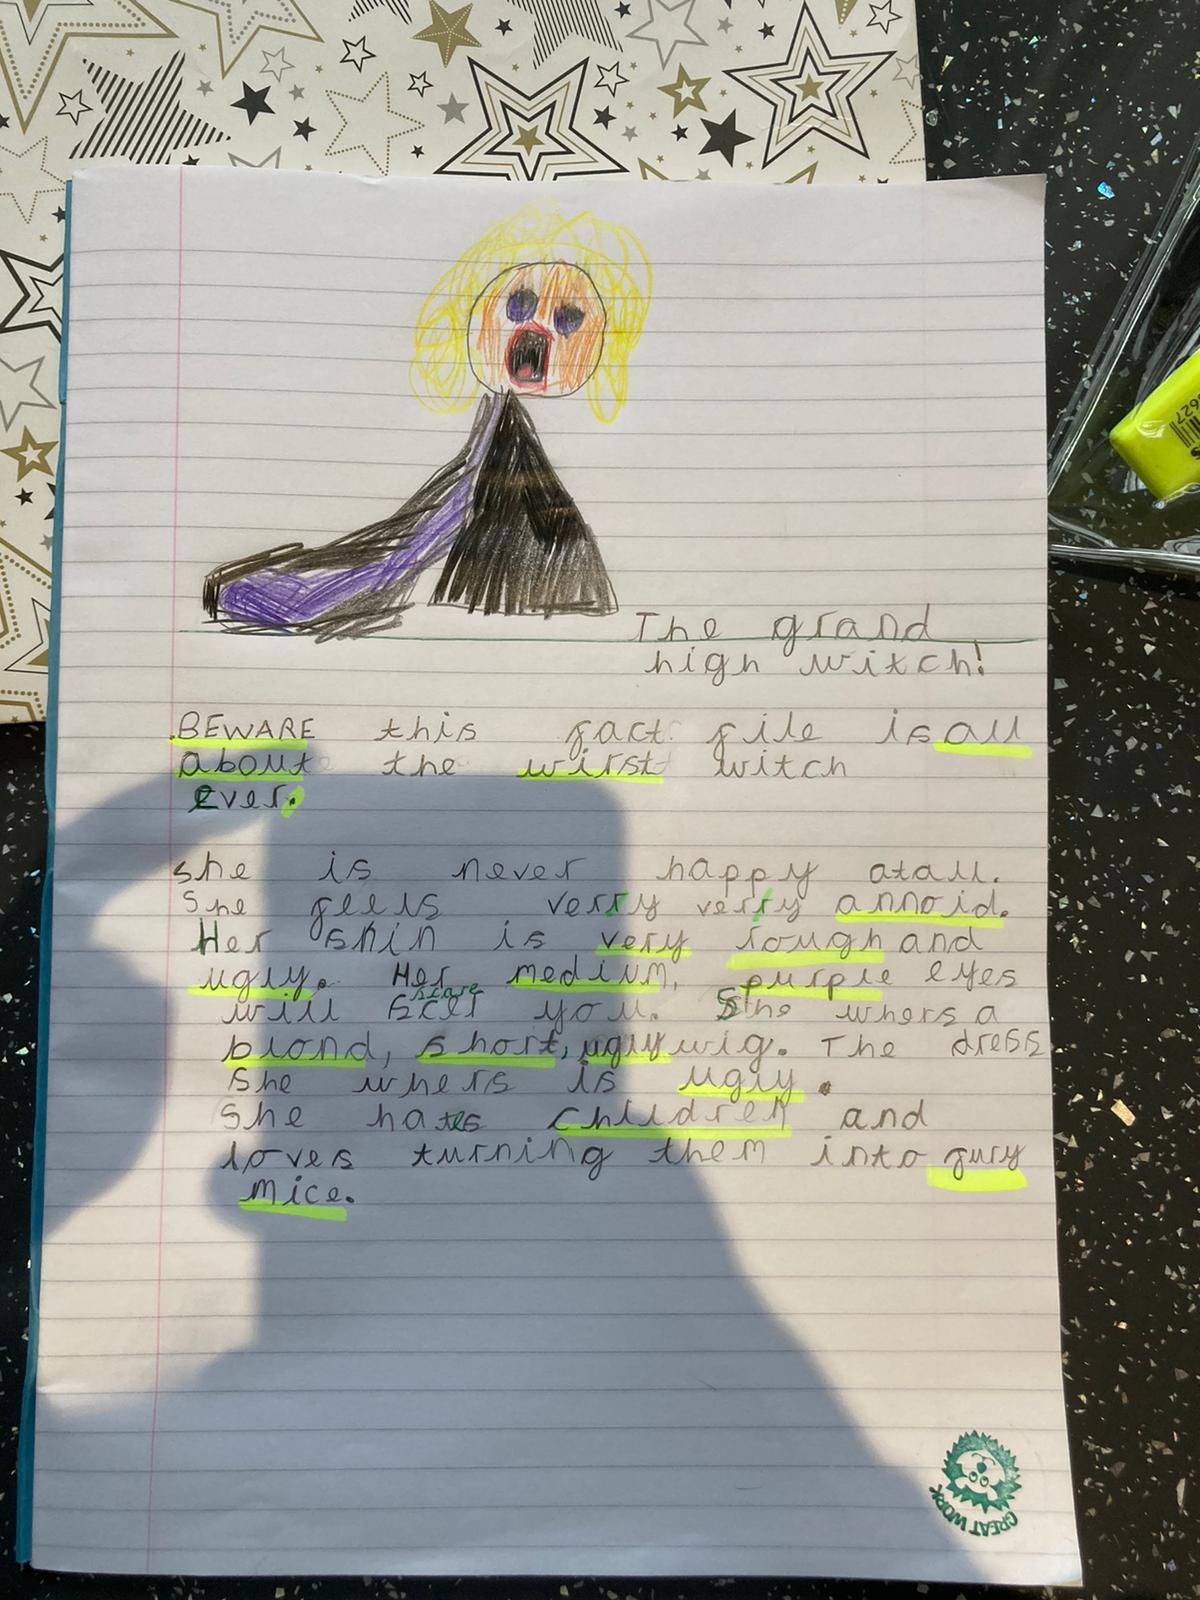 The grand
high witch!
BEWARE this fact file is all
about the wirst witch
ever.
she is never happy atall.
She feels verry verry annoid.
Her skin is very rough and
ugly. Her medium, purple eyes
stare
will you. She whers a
blond, short, ugly wig. The dress
she whers is ugly.
She hates children and
loves turning them into fury
mice.
GREAT WORK